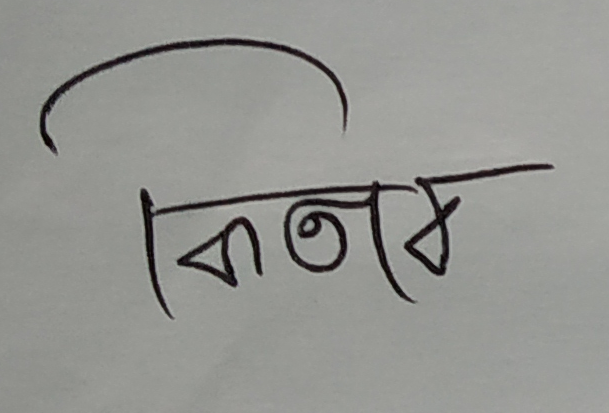 কিতাব